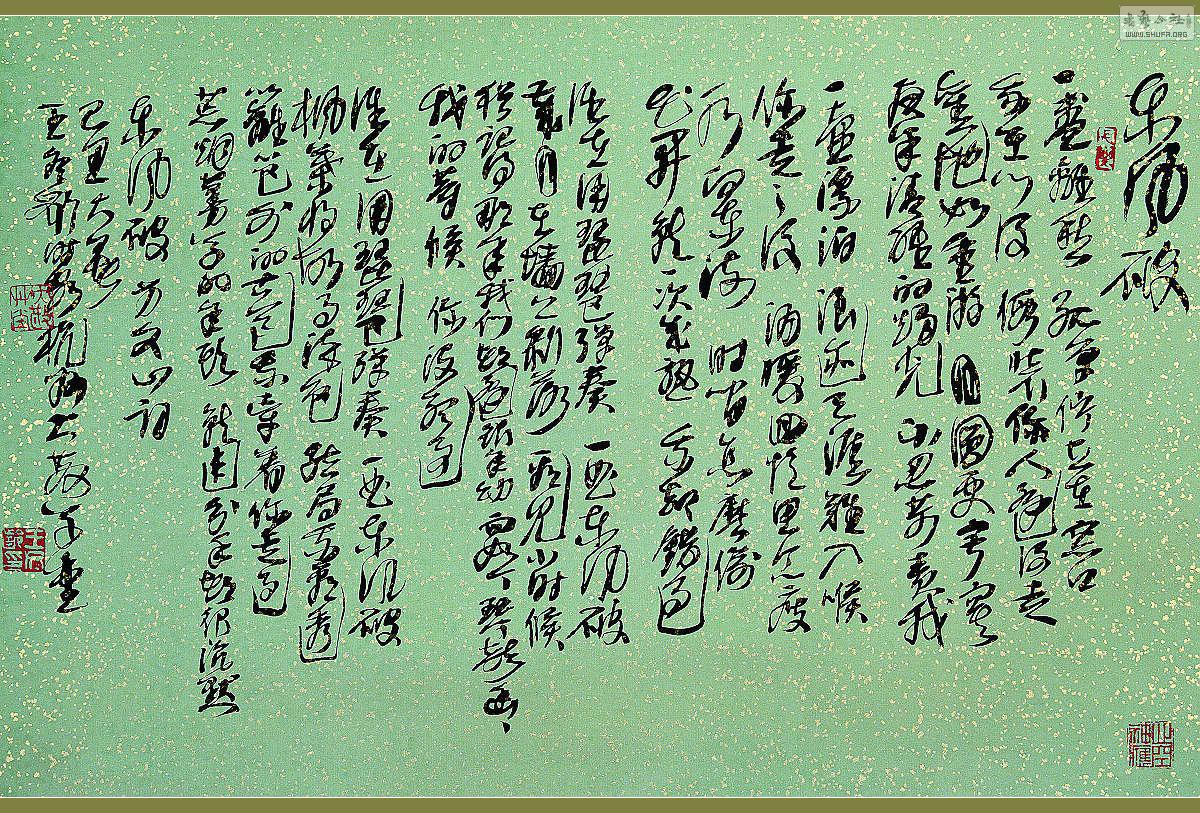 东风破
一盏離愁 孤单伫立在窗口
我在门後 假装你人还没走
旧地如重游 月圆更寂寞
夜半清醒的烛光 不忍苛责我
一壶漂泊 浪迹天涯難入喉
你走之後 酒暖回忆思念瘦
水向东流 时间怎麼偷
花开就一次成熟 我却错过
谁在用琵琶弹奏 一曲东风破
岁月在墙上剥落 看见小时候
犹记得那年我们都还很年幼 而如今琴声幽幽
我的等候 你没听过
谁在用琵琶弹奏 一曲东风破
枫叶将故事染色 结局我看透
篱笆外的古道我牵着你走过
荒烟蔓草的年头 就连分手都很沉默
东风破 方文山词
WWW.SHUFA.ORG